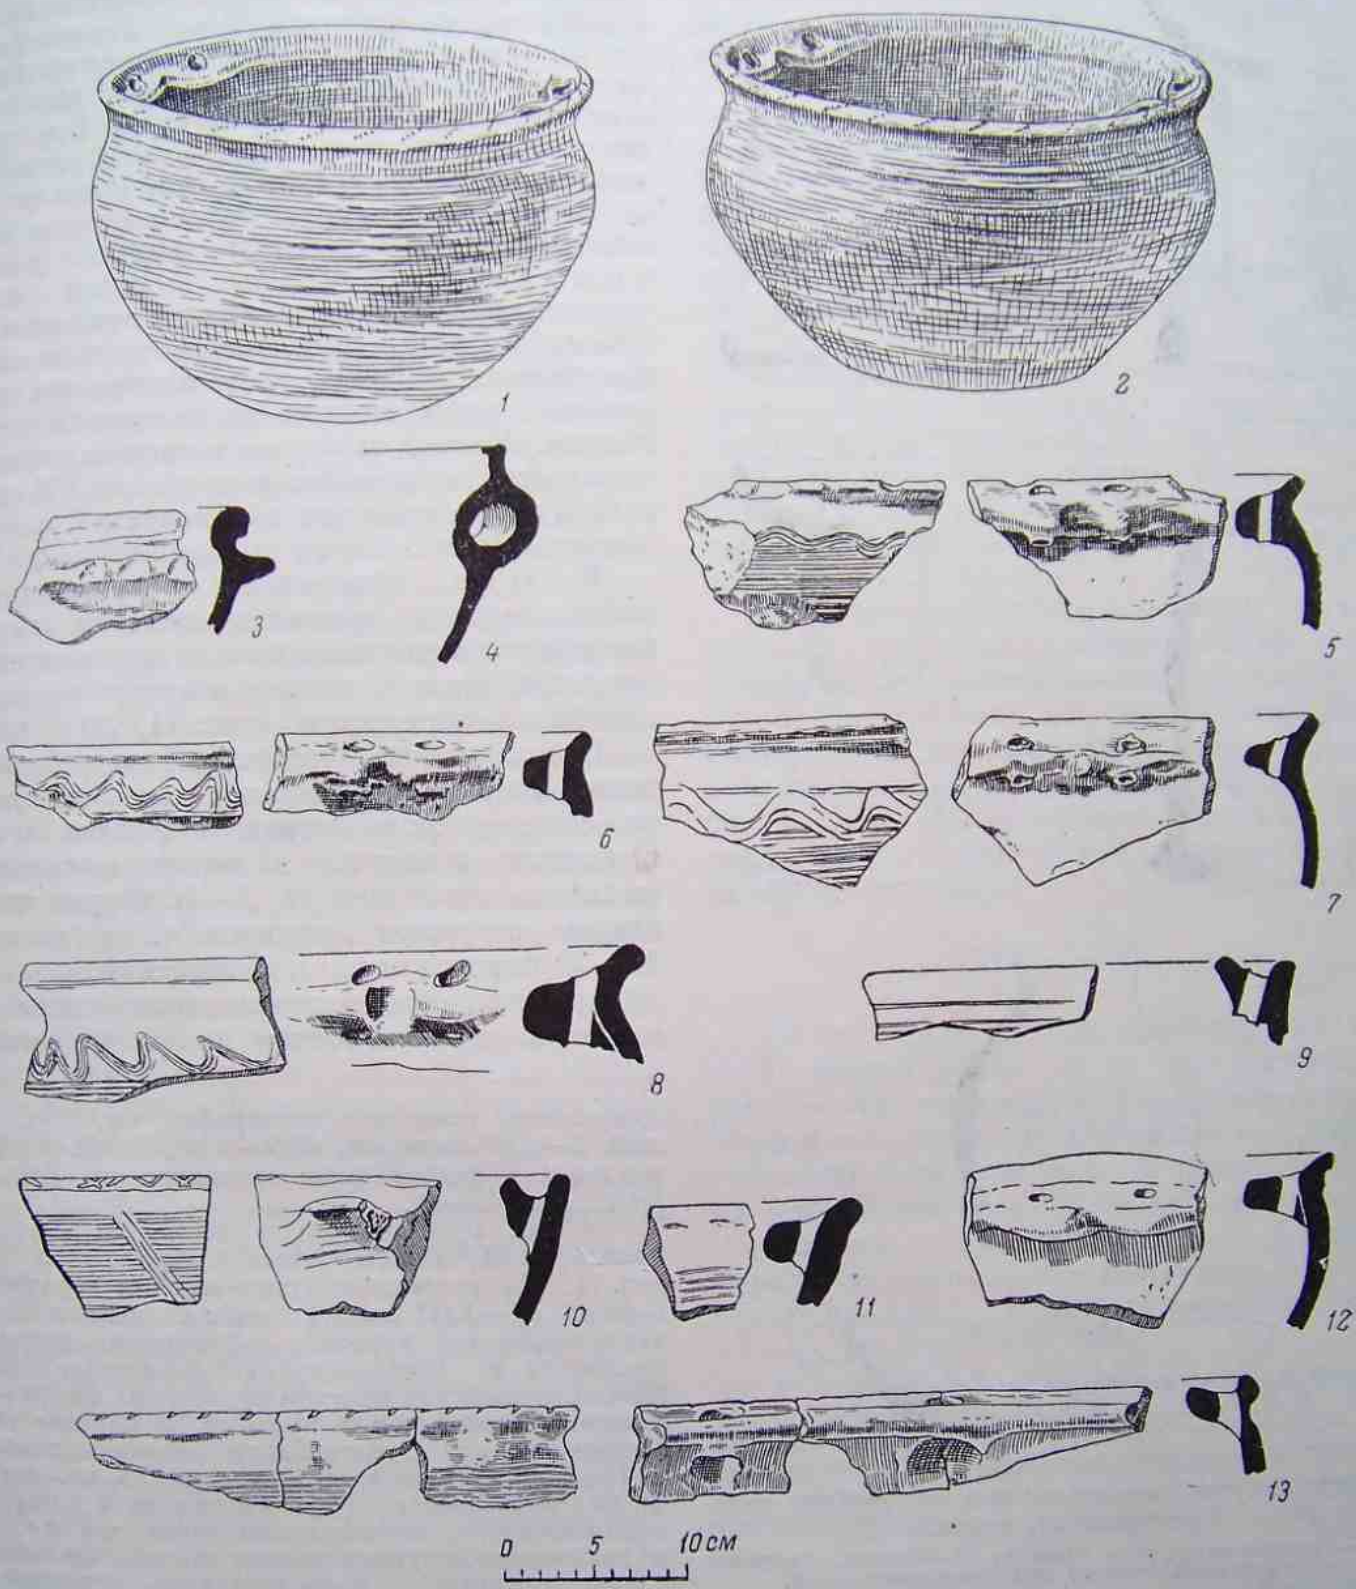 1
2
3
4
5
6
7
8
9
10
11
12
13
0 5 10 см